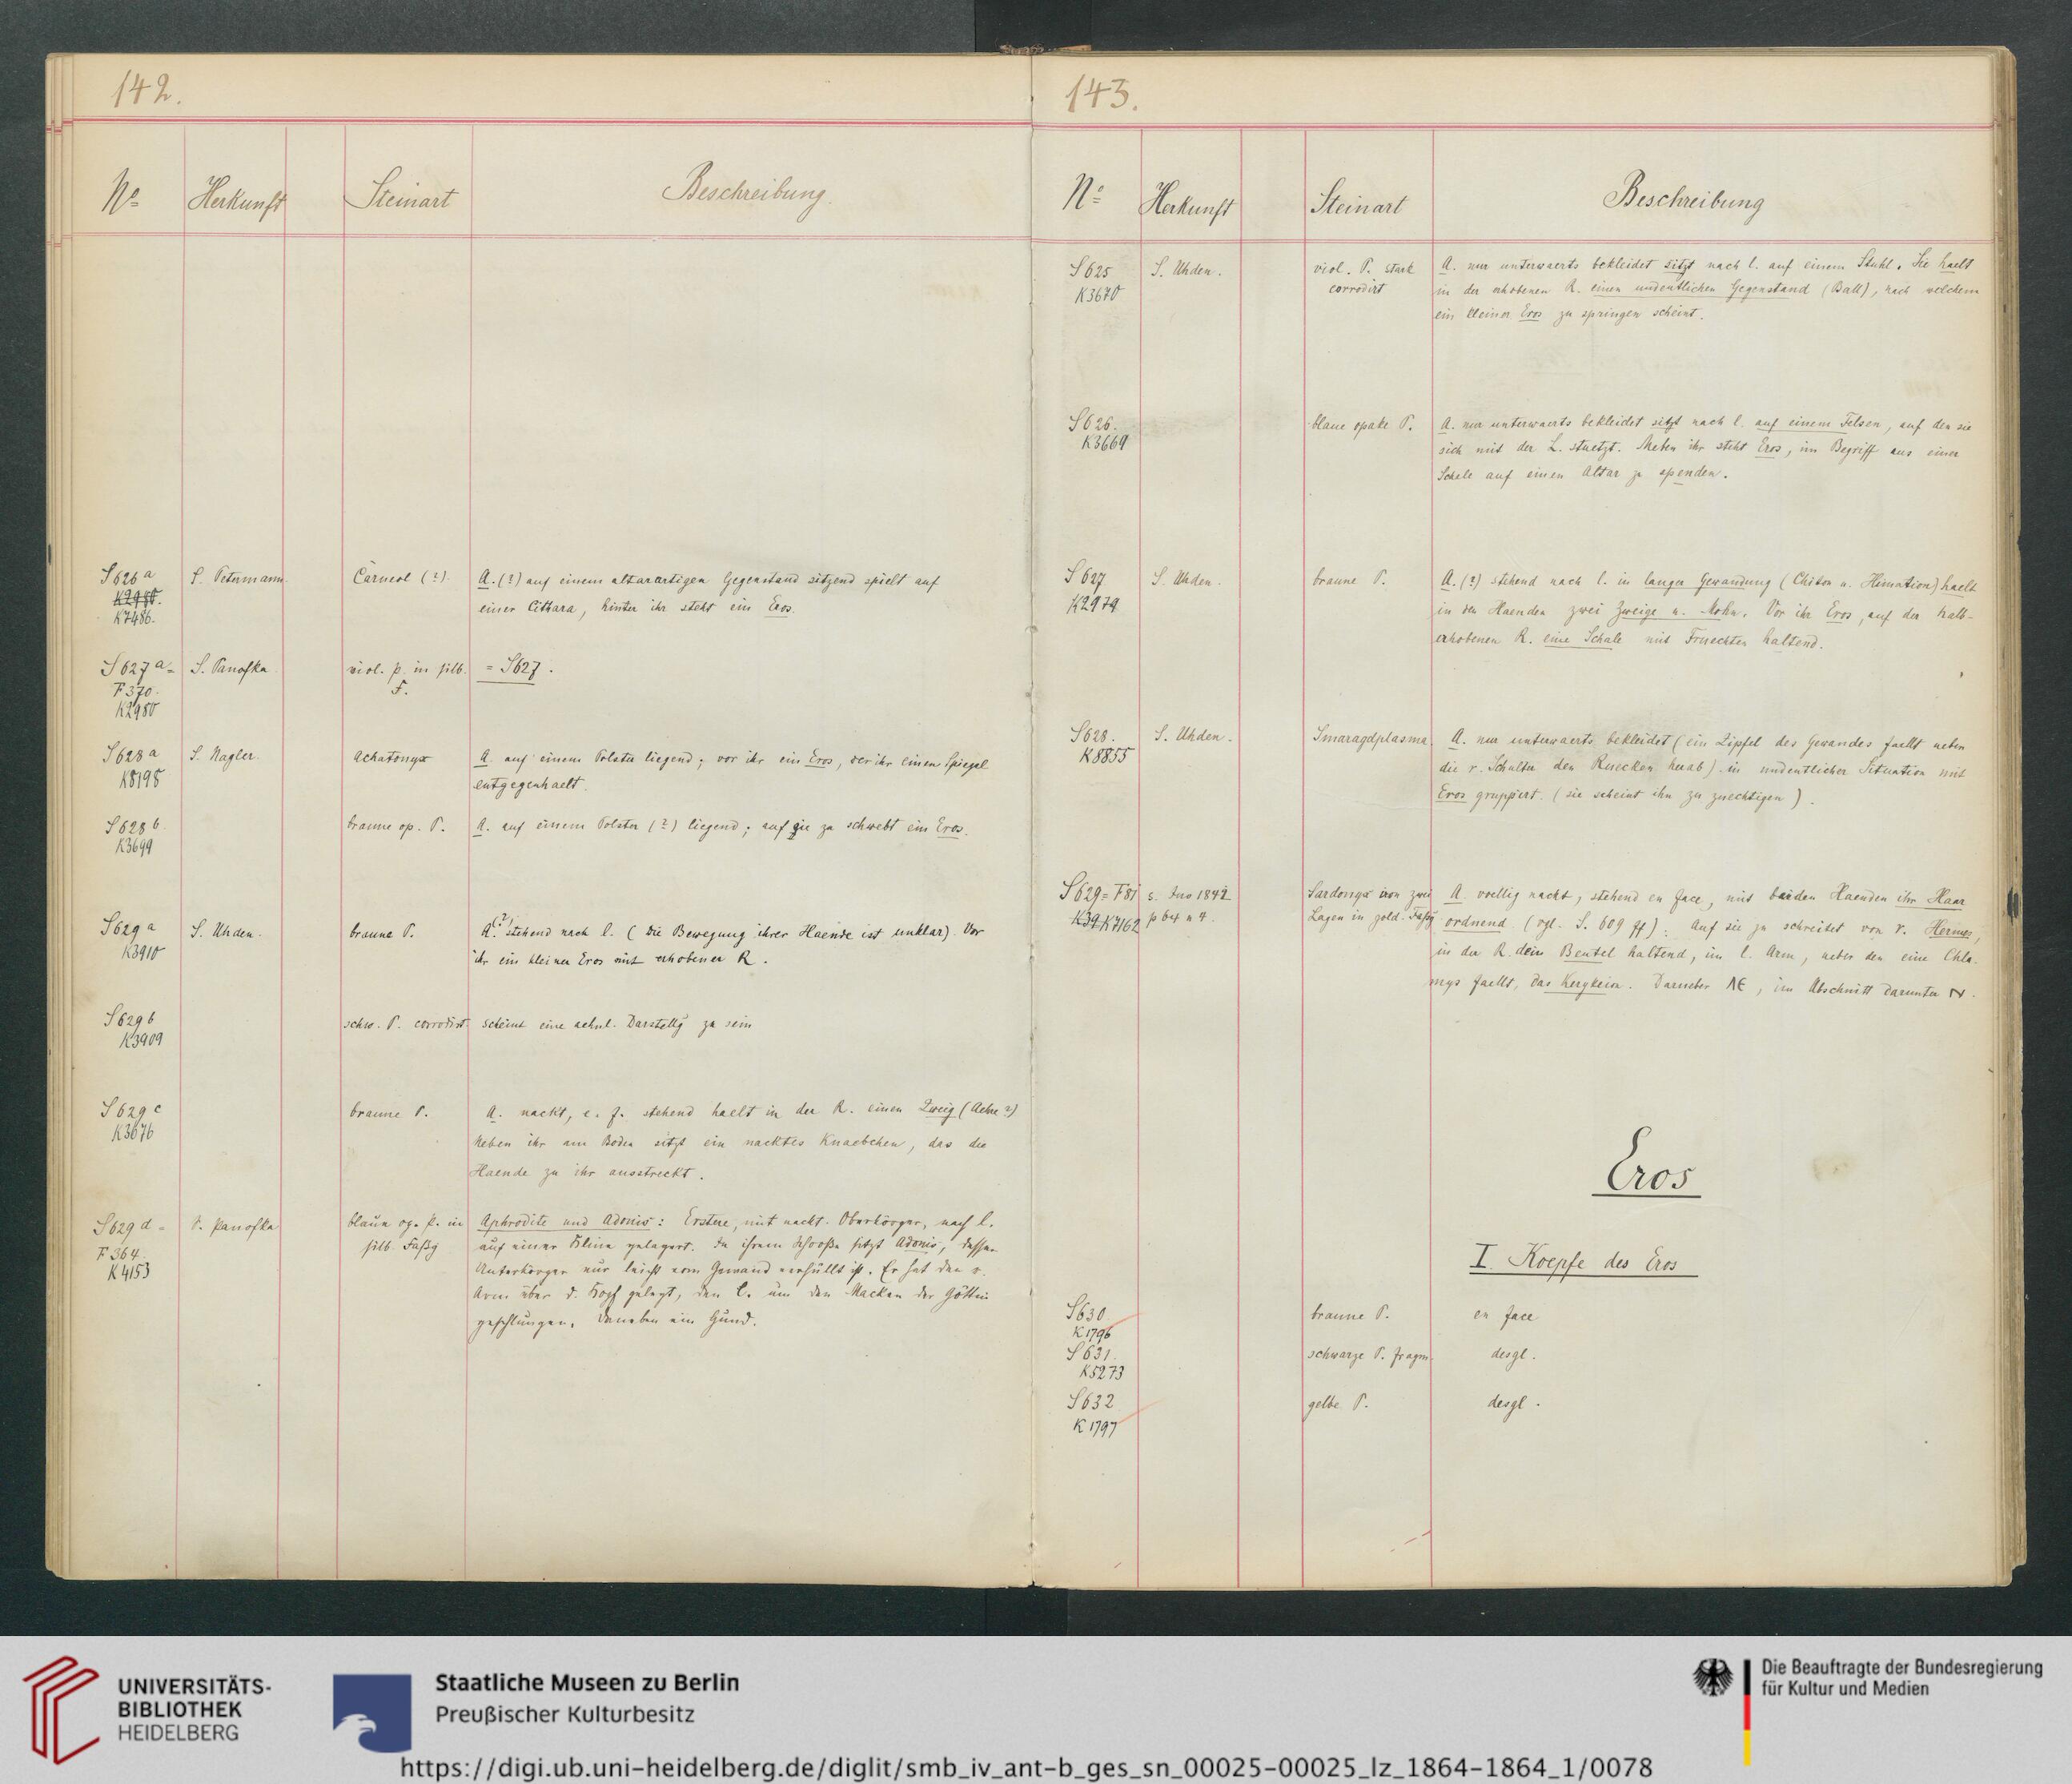 142.
Nº Herkunft Steinart Beschreibung.
S626a S. Petermann. Carneol (?). A. (?) auf einem altarartigen Gegenstand sitzend spielt auf
K2980. einer Cithara, hinter ihr steht ein Eros.
K7486.
S627a= S. Panofka viol. p. in silb. = S627.
F370. F.
K2980
S628a S. Nagler. Achatonyx A. auf einem Polster liegend; vor ihr ein Eros, der ihr einen Spiegel
K8198 entgegenhaelt.
S628b braune op. P. A. auf einem Polster (?) liegend; auf sie zu schwebt ein Eros.
K3699
S629a S. Uhden. braune P. A.(?) stehend nach l. (die Bewegung ihrer Haende ist unklar). Vor
K3910 ihr ein kleiner Eros mit erhobener R.
S629b schw. P. corrodirt scheint eine aehnl. Darstellg zu sein
K3909
S629c braune P. A. nackt, e. f. stehend haelt in der R. einen Zweig (Aehre?)
K3676 Neben ihr am Boden sitzt ein nacktes Knaebchen, das die
Haende zu ihr ausstreckt.
S629d = S. Panofka blaue op. P. in Aphrodite und Adonis: Erstere, mit nackt. Oberkörper, nach l.
F364. silb. Faßg auf einer Kline gelagert. In ihrem Schooße sitzt Adonis, dessen
K4153 Unterkörper nur leicht vom Gewand verhüllt ist. Er hat den r.
Arm über d. Kopf gelegt, den l. um den Nacken der Göttin
geschlungen. Daneben ein Hund.
143.
Nº Herkunft Steinart Beschreibung
S625 S. Uhden. viol. P. stark A. nur unterwaerts bekleidet sitzt nach l. auf einem Stuhl. Sie haelt
K3670 corrodirt in der erhobenen R. einen undeutlichen Gegenstand (Ball), nach welchem
ein kleiner Eros zu springen scheint.
S626. blaue opake P. A. nur unterwaerts bekleidet sitzt nach l. auf einem Felsen, auf den sie
K3669 sich mit der L. stuetzt. Neben ihr steht Eros, im Begriff aus einer
Schale auf einen Altar zu spenden.
S627 S. Uhden. braune P. A. (?) stehend nach l. in langer Gewandung (Chiton u. Himation) haelt
K2979 in den Haenden zwei Zweige u. Mohn. Vor ihr Eros, auf der halb-
erhobenen R. eine Schale mit Fruechten haltend.
S628. S. Uhden. Smaragdplasma. A. nur unterwaerts bekleidet (ein Zipfel des Gewandes faellt neben
K8855 die r. Schulter den Ruecken herab) in undeutlicher Situation mit
Eros gruppiert. (sie scheint ihn zu zuechtigen).
S629=F81 s. Inv 1842 Sardonyx von zwei A. voellig nackt, stehend en face, mit beiden Haenden ihr Haar
K39 K7162 p 64 n 4. Lagen in gold. Faßg ordnend. (vgl. S. 609 ff): Auf sie zu schreitet von r. Hermes,
in der R. den Beutel haltend, im l. Arm, ueber den eine Chla-
mys faellt, das Kerykeion. Darueber ΛЄ, im Abschnitt darunter N.
Eros
I. Koepfe des Eros
S630. braune P. en face
K1796
S631. schwarze P. fragm. desgl.
K5273
S632 gelbe P. desgl.
K1797
UNIVERSITÄTS-
BIBLIOTHEK
HEIDELBERG
Staatliche Museen zu Berlin
Preußischer Kulturbesitz
Die Beauftragte der Bundesregierung
für Kultur und Medien
https://digi.ub.uni-heidelberg.de/diglit/smb_iv_ant-b_ges_sn_00025-00025_lz_1864-1864_1/0078